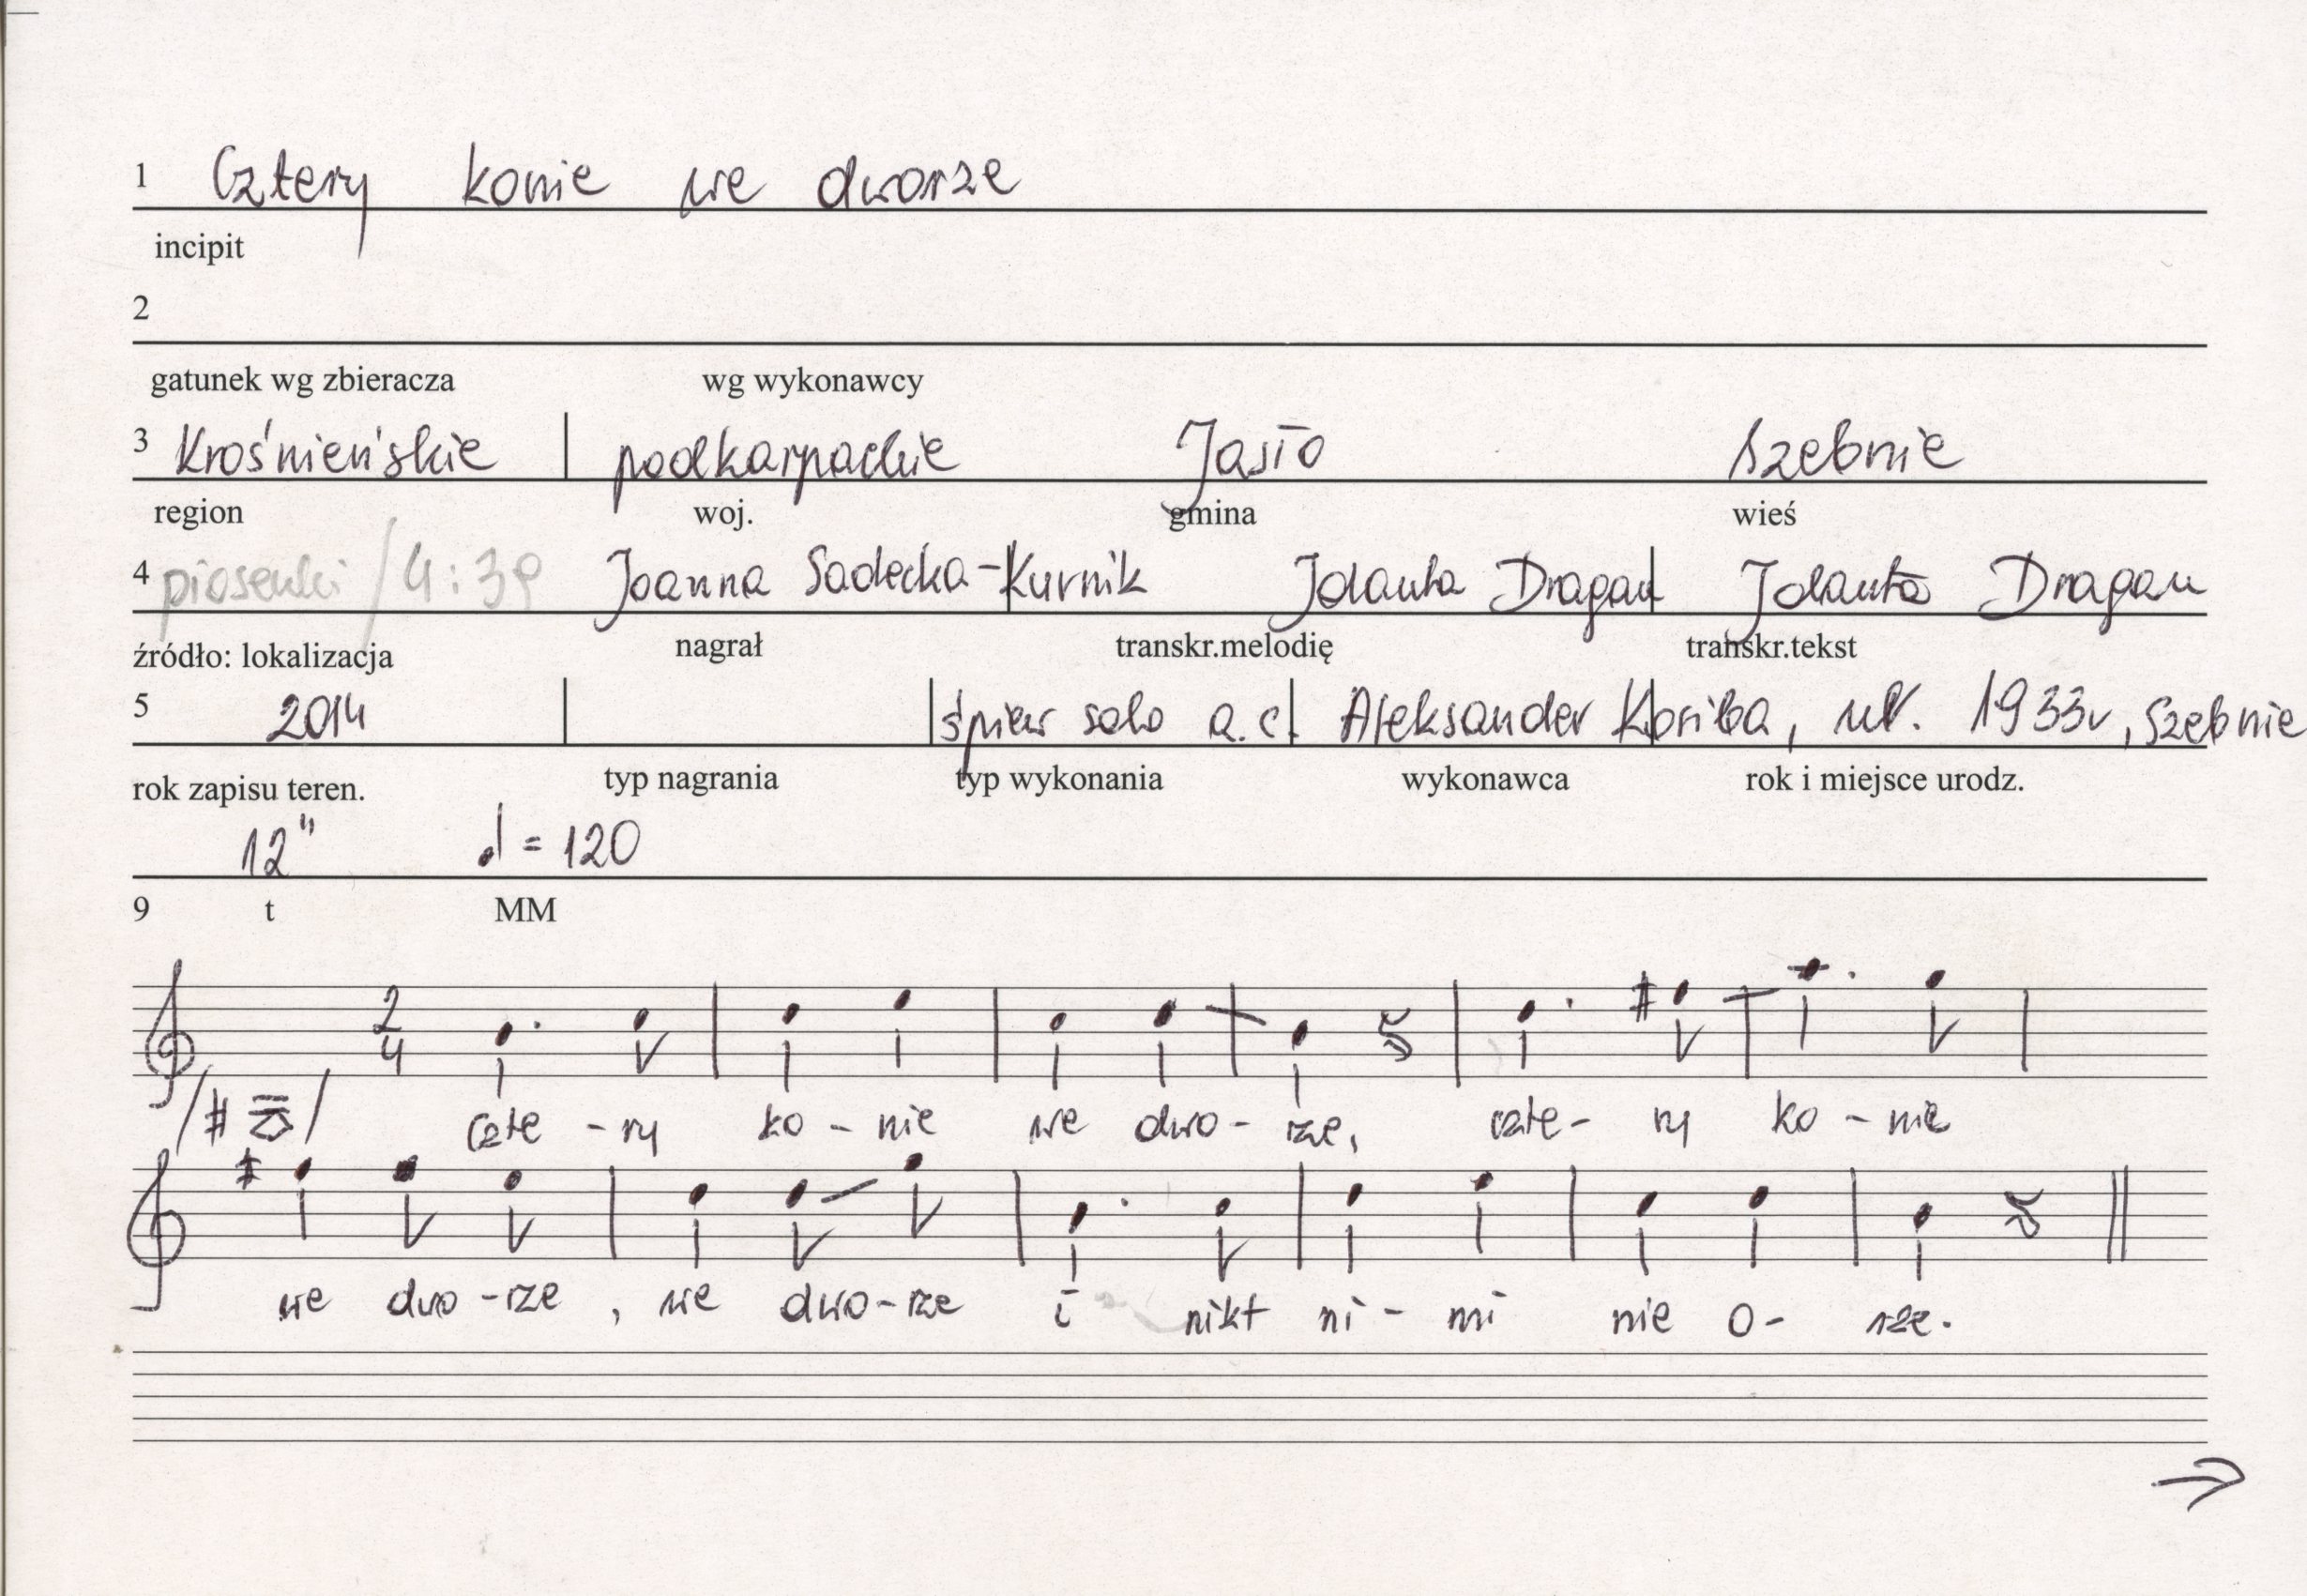 1 Cztery konie we dworze
incipit
2
gatunek wg zbieracza wg wykonawcy
3 Krośnieńskie podkarpackie Jasło Szebnie
region woj. gmina wieś
4 piosenki / 4:39 Joanna Sadecka-Kurnik Jolanta Dragan Jolanta Dragan
źródło: lokalizacja nagrał transkr.melodię transkr.tekst
5 2014 śpiew solo a.c. Aleksander Koriba, ur. 1933r, Szebnie
rok zapisu teren. typ nagrania typ wykonania wykonawca rok i miejsce urodz.
12" = 120
9 t MM
2
4
czte - ry ko - nie we dwo - rze, czte - ry ko - nie
we dwo - rze, we dwo - rze i nikt ni - mi nie o - rze.